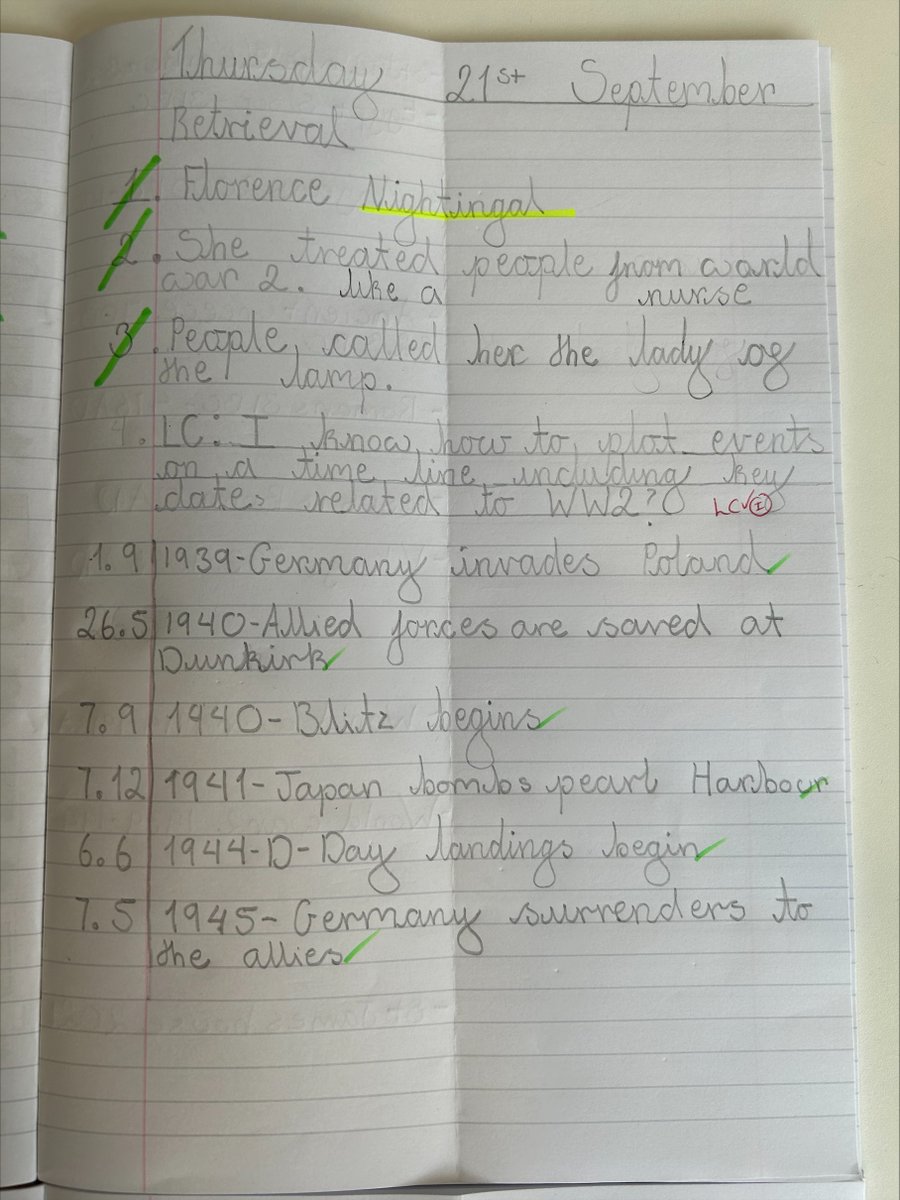 Thursday 21st September
Retrieval
1. Florence Nightingal
2. She treated people from world
war 2. like a nurse
3. People called her the lady og
the lamp.
4. LC: I know how to plot events
on a time line including key
dates related to WW2?
LC✓Ⓘ
1.9 1939-Germany invades Poland
26.5 1940-Allied forces are saved at
Dunkirk
7.9 1940-Blitz begins
7.12 1941-Japan bombs pearl Harbour
6.6 1944-D-Day landings begin
7.5 1945-Germany surrenders to
the allies